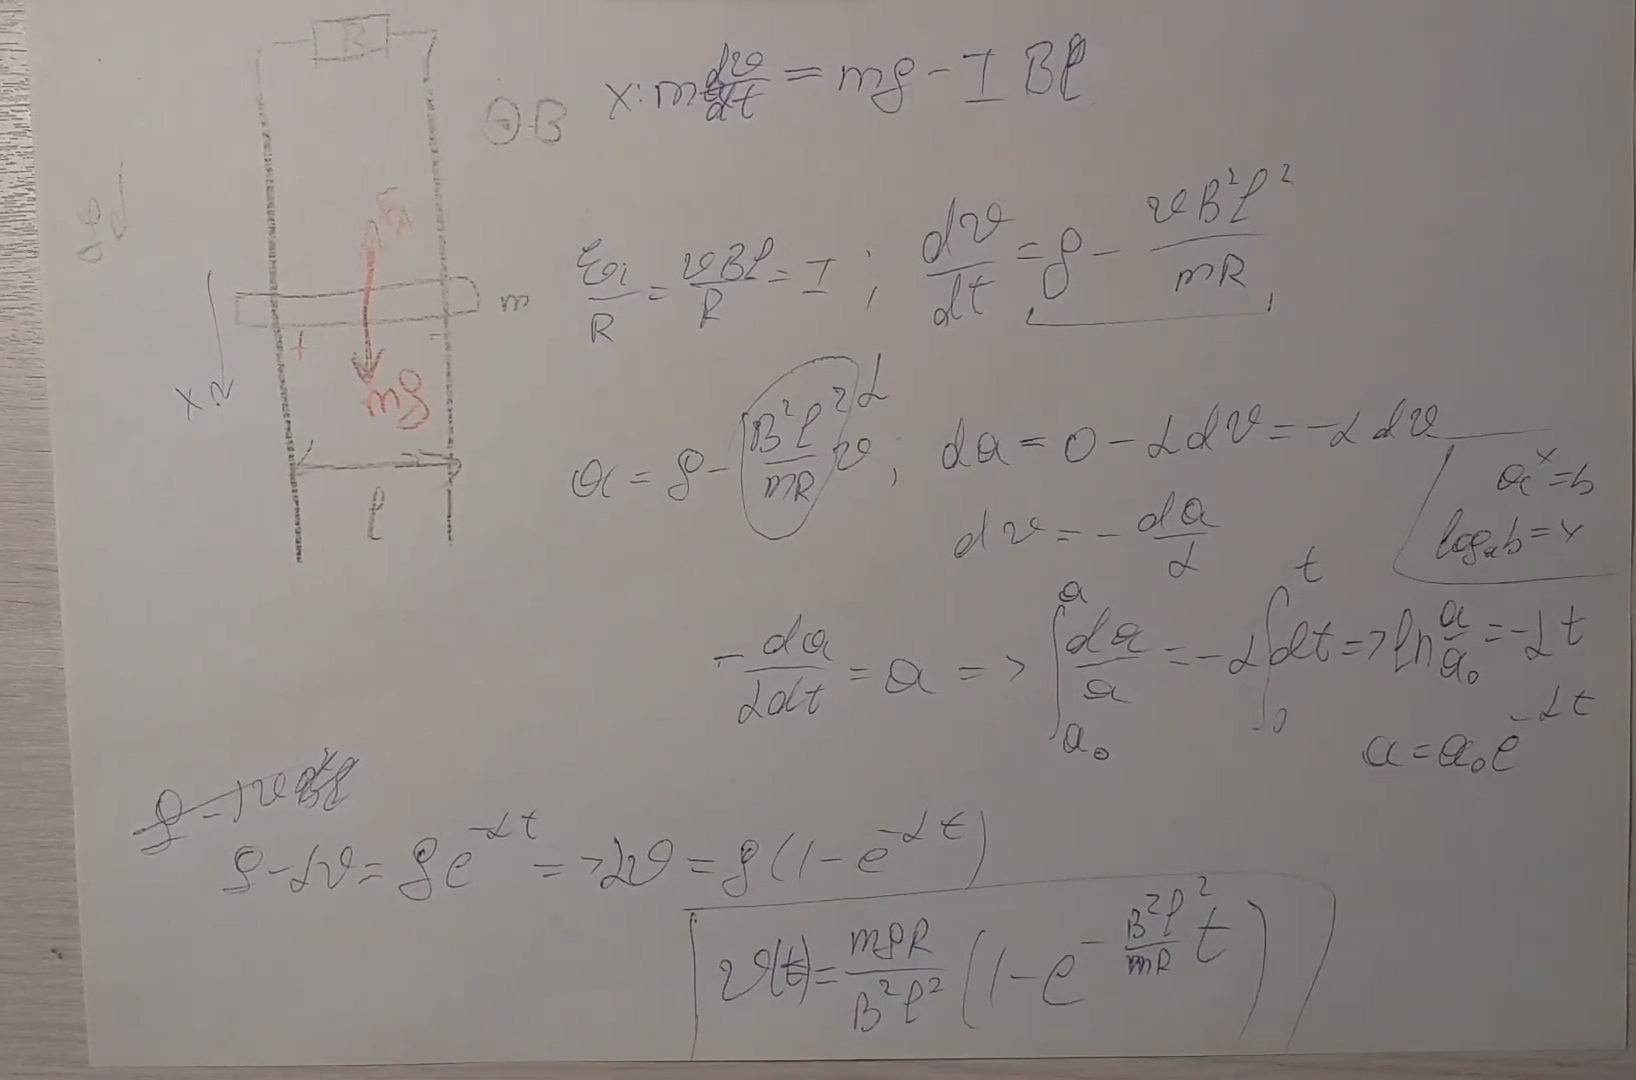 R
⊙B
x: m dv/dt = mg - I Bl
g
F_A
m
+ -
mg
x
l
ℰi/R = vBl/R = I ; dv/dt = g - vB²l²/mR
a = g - (B²l²/mR) v ; da = 0 - αdv = -αdv
α
dv = - da/α
aˣ = b
logₐb = x
- da/αdt = a => ∫_{a₀}^{a} da/a = -α∫_{0}^{t} dt => ln a/a₀ = -αt
a = a₀e^{-αt}
g - αv = ge^{-αt} => αv = g(1 - e^{-αt})
v(t) = mgR/B²l² (1 - e^{- B²l²/mR t})